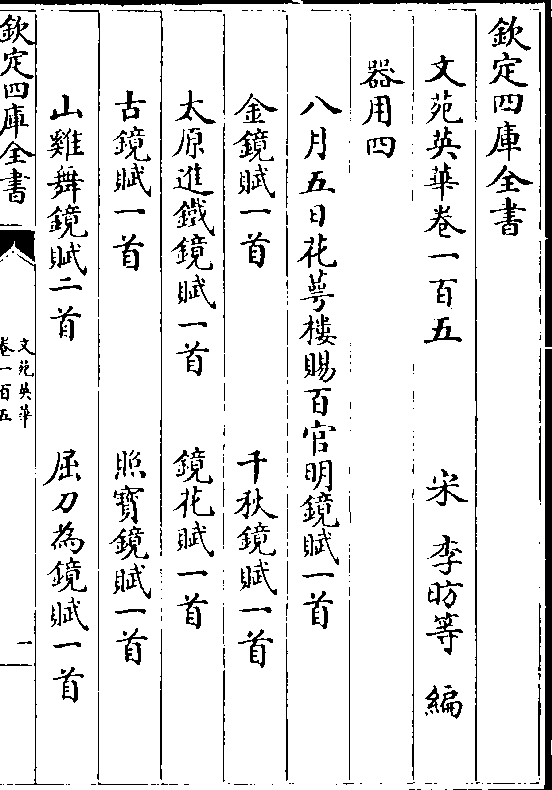 欽定四庫全書
文苑英華卷一百五　宋　李昉等　編
器用四
八月五日花萼樓賜百官明鏡賦一首
金鏡賦一首　千秋鏡賦一首
太原進鐵鏡賦一首　鏡花賦一首
古鏡賦一首　照寶鏡賦一首
山雞舞鏡賦二首　屈刀為鏡賦一首
欽定四庫全書
文苑英華
卷一百五
一